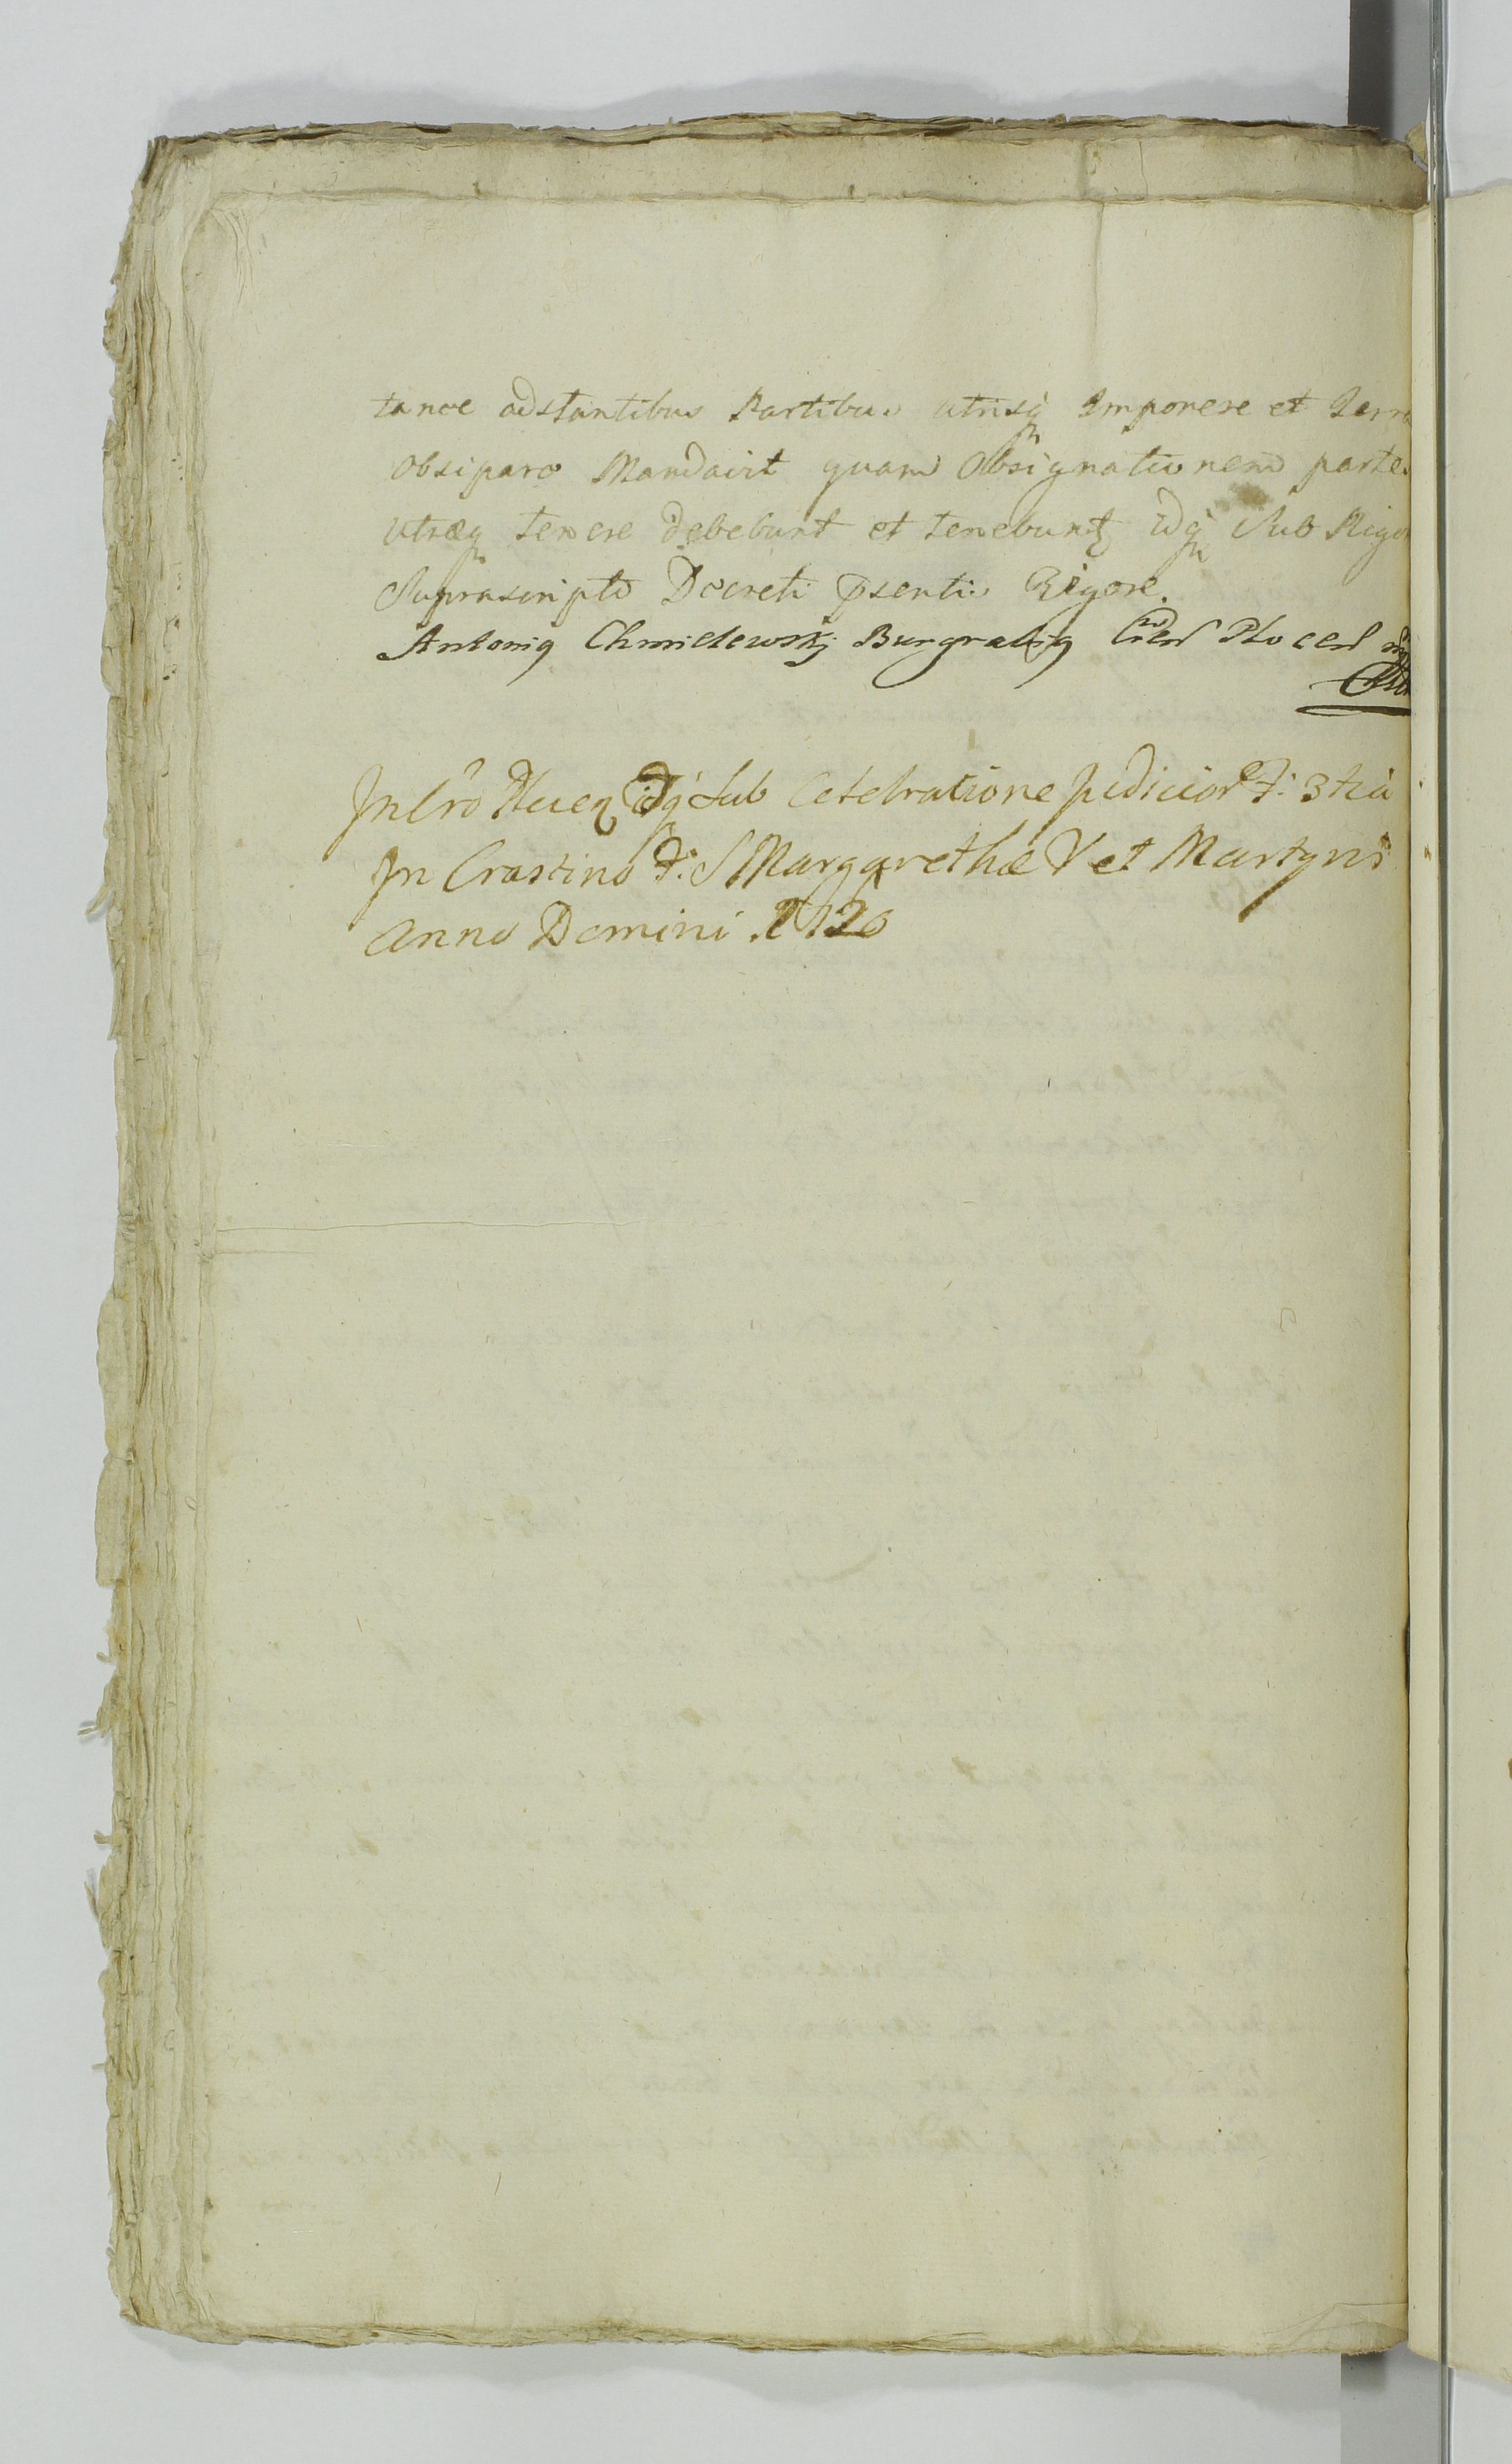 tance adstantibus Partibus utrisq Imponere et Terra
Obsipare Mandavit quam Obsignationem partes
utræq tenere debebunt et tenebunt idq Sub Rigo
Suprascripto Decreti psentis Rigore.
Antoniq Chmielewskj Burgrabiq Plocen
In Cro idq Sub Celebratione Judicior F: 3tia
In Crastino F: S Margarethæ V et Martyris
Anno Domini 1726